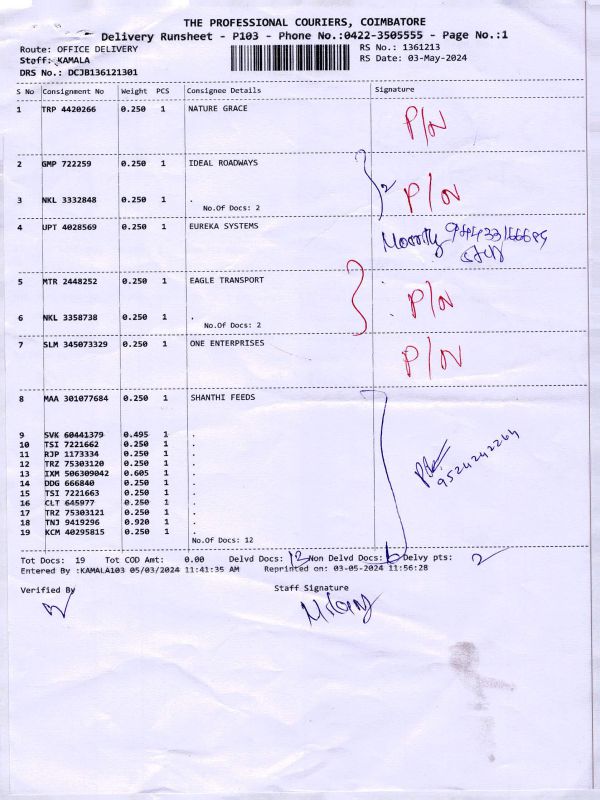 THE PROFESSIONAL COURIERS, COIMBATORE
Delivery Runsheet - P103 - Phone No.:0422-3505555 - Page No.:1
Route: OFFICE DELIVERY RS No.: 1361213
Staff: KAMALA RS Date: 03-May-2024
DRS No.: DCJB136121301
S No Consignment No Weight PCS Consignee Details Signature
1 TRP 4420266 0.250 1 NATURE GRACE P/N
2 GMP 722259 0.250 1 IDEAL ROADWAYS
3 NKL 3332848 0.250 1 . 2 P/N
No.Of Docs: 2
4 UPT 4028569 0.250 1 EUREKA SYSTEMS
5 MTR 2448252 0.250 1 EAGLE TRANSPORT
P/N
6 NKL 3358738 0.250 1 .
No.Of Docs: 2
7 SLM 345073329 0.250 1 ONE ENTERPRISES P/N
8 MAA 301077684 0.250 1 SHANTHI FEEDS
9 SVK 60441379 0.495 1 .
10 TSI 7221662 0.250 1 .
11 RJP 1173334 0.250 1 .
12 TRZ 75303120 0.250 1 .
13 IXM 506309042 0.605 1 .
14 DDG 666840 0.250 1 .
15 TSI 7221663 0.250 1 .
16 CLT 645977 0.250 1 .
17 TRZ 75303121 0.250 1 .
18 TNJ 9419296 0.920 1 .
19 KCM 40295815 0.250 1 .
No.Of Docs: 12
Tot Docs: 19 Tot COD Amt: 0.00 Delvd Docs: 13 Non Delvd Docs: 6 Delvy pts: 2
Entered By :KAMALA103 05/03/2024 11:41:35 AM Reprinted on: 03-05-2024 11:56:28
Verified By Staff Signature